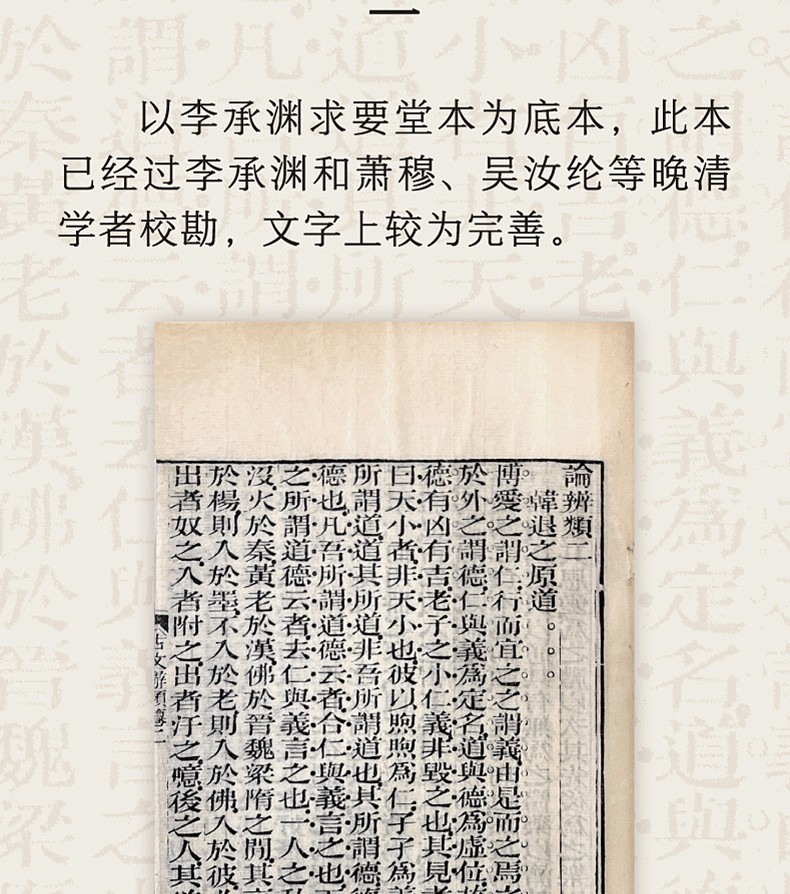 一
以李承渊求要堂本为底本，此本
已经过李承渊和萧穆、吴汝纶等晚清
学者校勘，文字上较为完善。
論辨類二
韓退之原道。。。
博愛之謂仁行而宜之之謂義由是而之焉之
於外之謂德仁與義爲定名道與德爲虛位故
德有凶有吉老子之小仁義非毀之也其見者
曰天小者非天小也彼以煦煦爲仁孑孑爲義
所謂道道其所道非吾所謂道也其所謂德德
德也凡吾所謂道德云者合仁與義言之也天
之所謂道德云者去仁與義言之也一人之私
沒火於秦黃老於漢佛於晉魏梁隋之間其言
於楊則入於墨不入於老則入於佛入於彼必
出者奴之入者附之出者汙之噫後之人其欲
古文辭類纂二